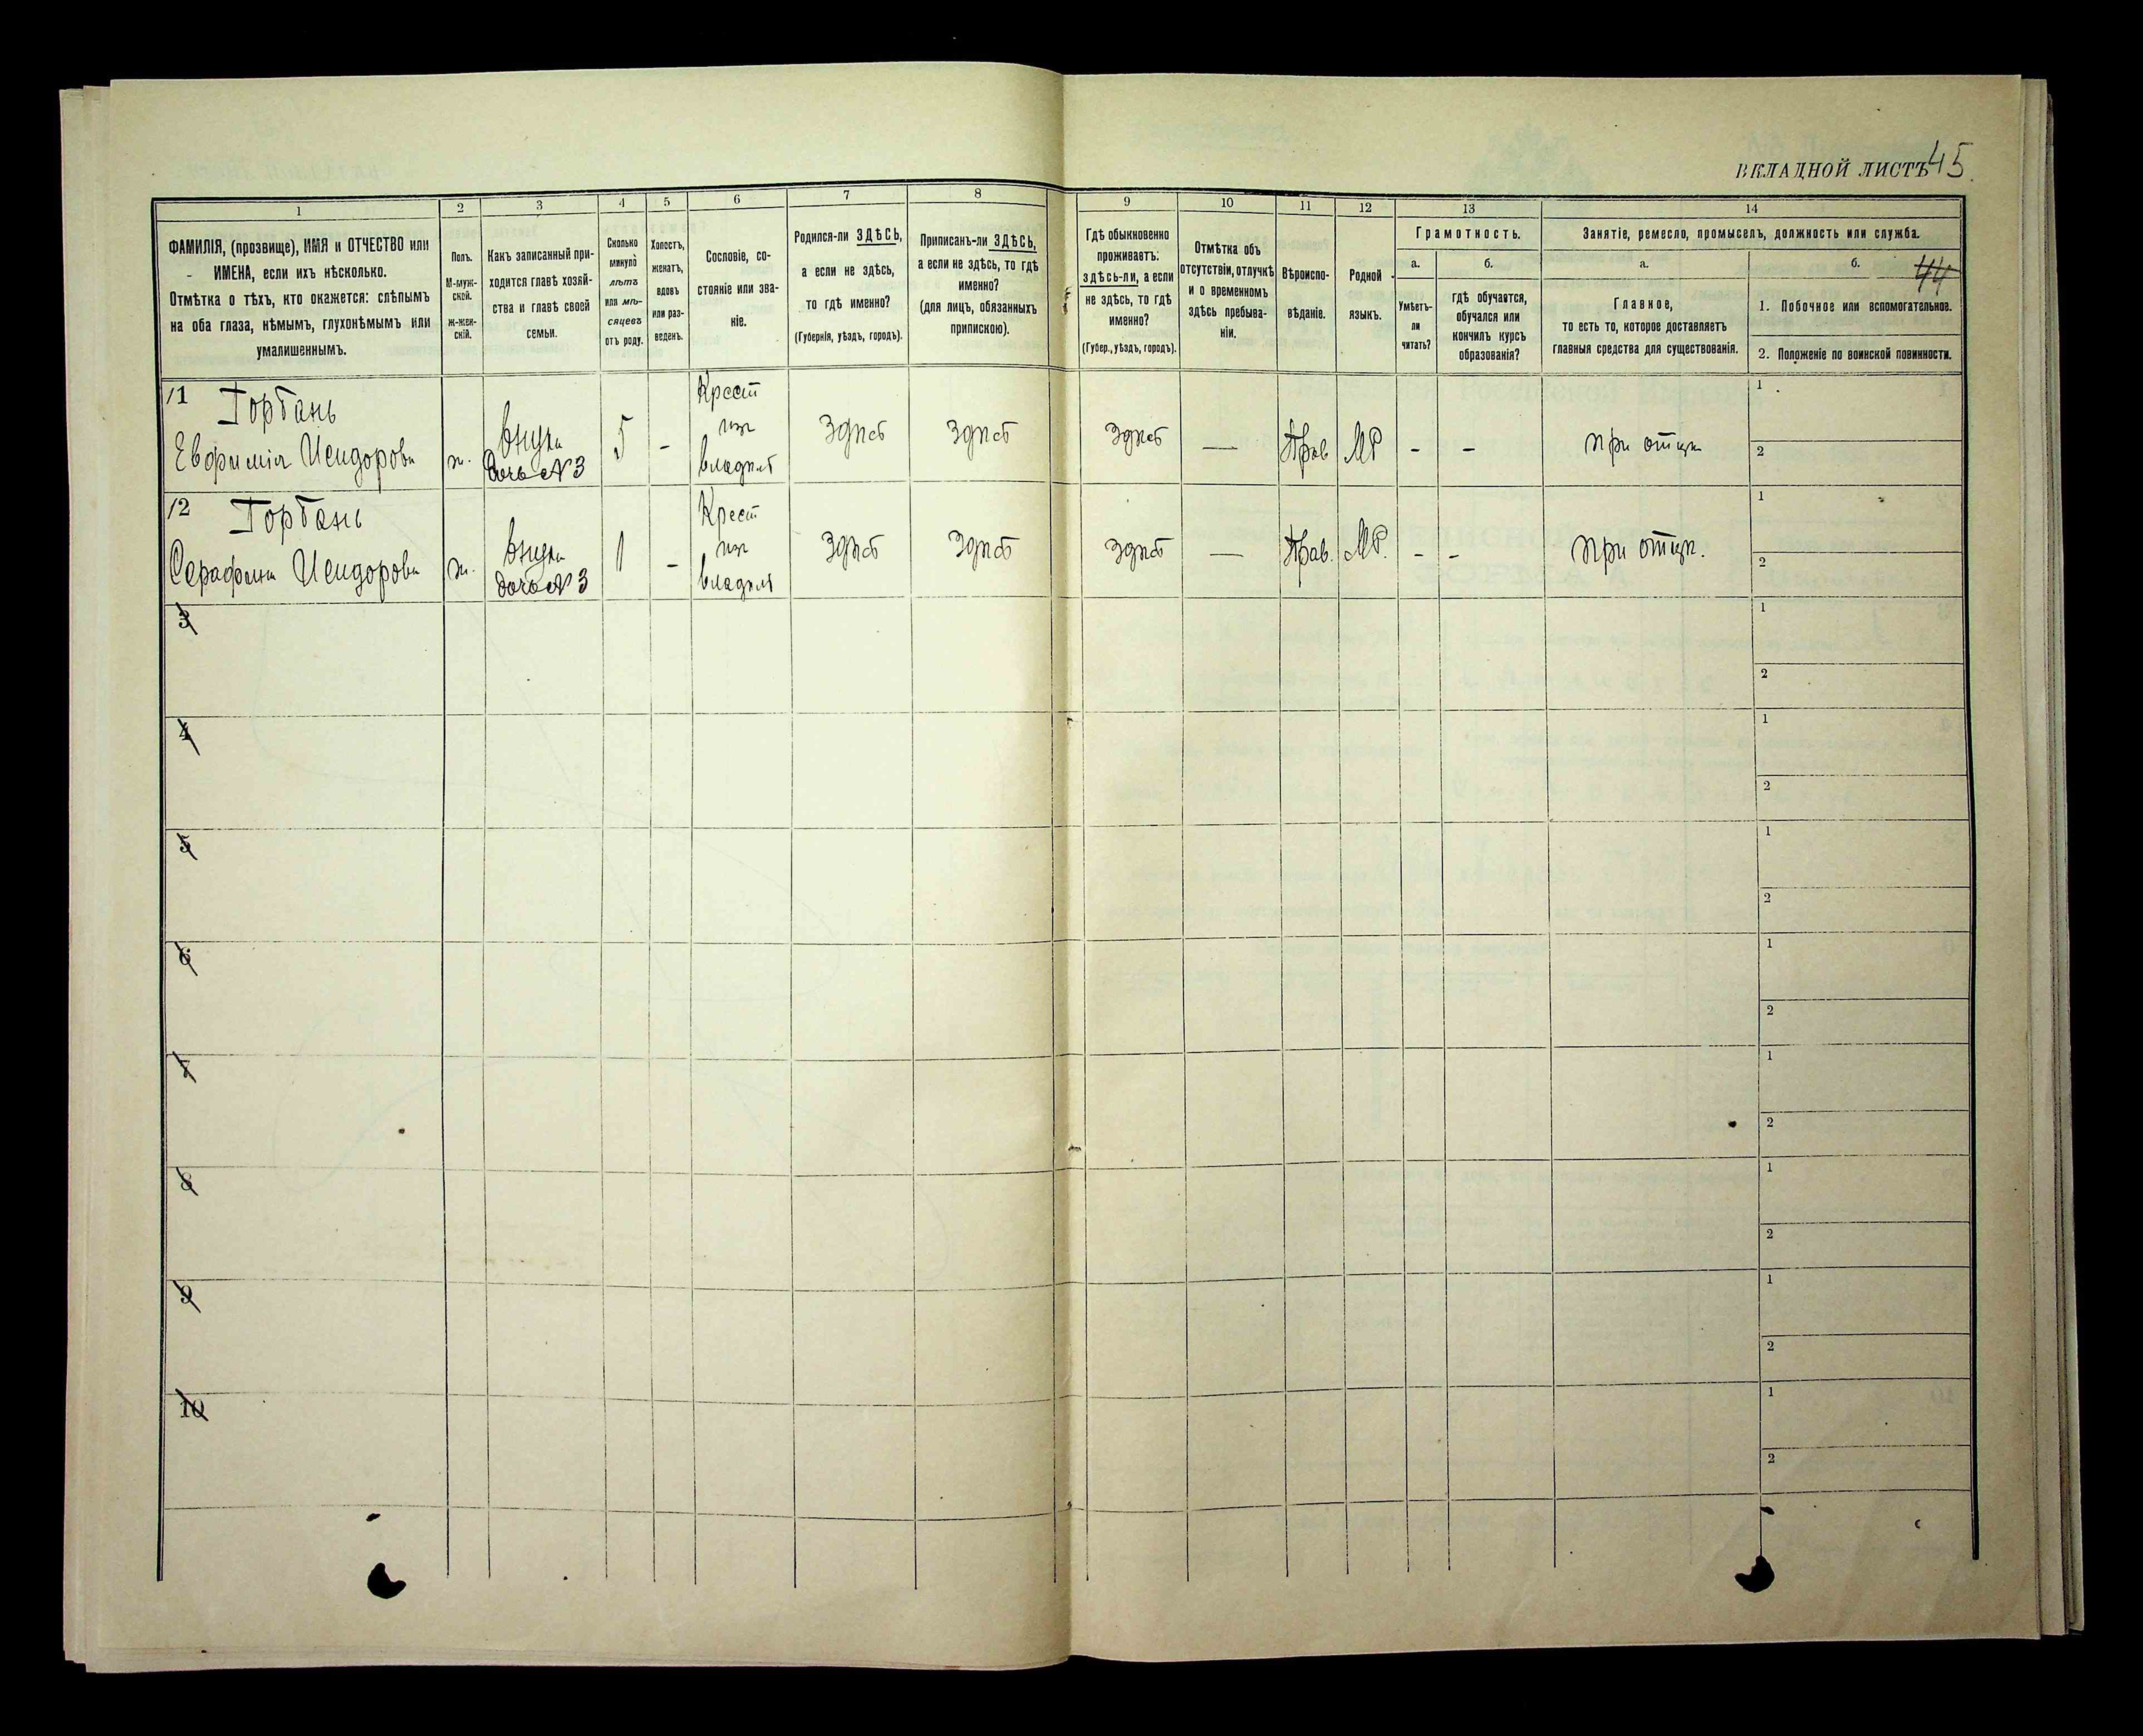 ВКЛАДНОЙ ЛИСТЪ 45.
44
1
2
3
4
5
6
7
8
9
10
11
12
13
14
ФАМИЛІЯ, (прозвище), ИМЯ и ОТЧЕСТВО или
ИМЕНА, если ихъ нѣсколько.
Отмѣтка о тѣхъ, кто окажется: слѣпымъ
на оба глаза, нѣмымъ, глухонѣмымъ или
умалишеннымъ.
Полъ.
М-муж-
ской.
ж-жен-
скій.
Какъ записанный при-
ходится главѣ хозяй-
ства и главѣ своей
семьи.
Сколько
минуло
лѣтъ
или мѣ-
сяцевъ
отъ роду.
Холостъ,
женатъ,
вдовъ
или раз-
веденъ.
Сословіе, со-
стояніе или зва-
ніе.
Родился-ли ЗДѢСЬ,
а если не здѣсь,
то гдѣ именно?
(Губернія, уѣздъ, городъ).
Приписанъ-ли ЗДѢСЬ,
а если не здѣсь, то гдѣ
именно?
(для лицъ, обязанныхъ
припискою).
Гдѣ обыкновенно
проживаетъ:
здѣсь-ли, а если
не здѣсь, то гдѣ
именно?
(Губер., уѣздъ, городъ).
Отмѣтка объ
отсутствіи, отлучкѣ
и о временномъ
здѣсь пребыва-
ніи.
Вѣроиспо-
вѣданіе.
Родной
языкъ.
Грамотность.
а.
Умѣетъ-
ли
читать?
б.
гдѣ обучается,
обучался или
кончилъ курсъ
образованія?
Занятіе, ремесло, промыселъ, должность или служба.
а.
Главное,
то есть то, которое доставляетъ
главныя средства для существованія.
б.
1. Побочное или вспомогательное.
2. Положеніе по воинской повинности.
11 Горбань
Евфимія Исидорова
ж.
внука
дочь №3
5
-
Крест
изъ
владѣл
здѣсь
здѣсь
здѣсь
—
Прав
МР
-
-
при отцѣ
1
2
12 Горбань
Серафима Исидорова
ж.
внука
дочь №3
1
-
Крест
изъ
владѣл
здѣсь
здѣсь
здѣсь
—
Прав.
МР.
-
-
при отцѣ.
1
2
3
1
2
4
1
2
5
1
2
6
1
2
7
1
2
8
1
2
9
1
2
10
1
2